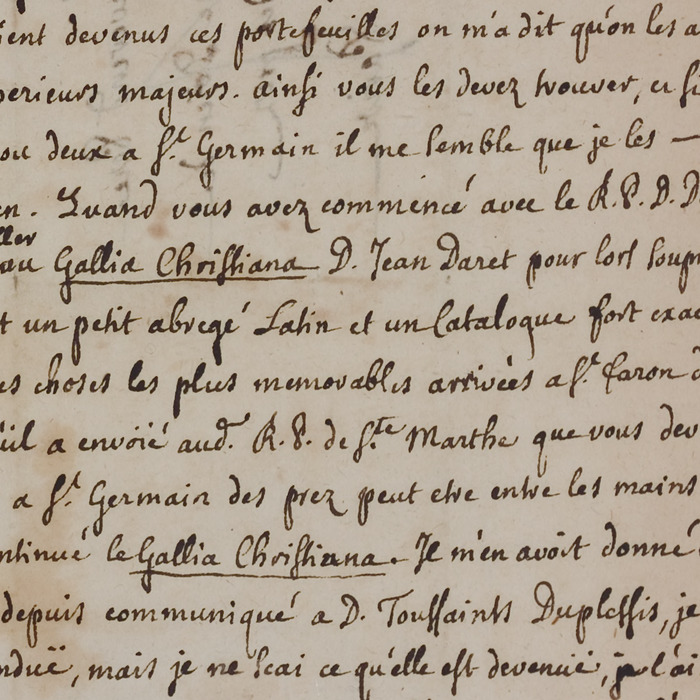 ient devenus ces portefeuilles on m'a dit qu'on les a
perieurs majeurs. ainsi vous les devez trouver, et si
ou deux a St. Germain il me semble que je les —
en. Quand vous avez commencé avec le R.P.D.D
ller
au Gallia Christiana D. Jean Daret pour lors soupr
t un petit abregé Latin et un Catalogue fort exac
es choses les plus memorables arrivées a St. faron d
u'il a envoié aud. R.P. de Ste Marthe que vous dev
a St. Germain des prez peut etre entre les mains
ntinué le Gallia Christiana. Il m'en avoit donné
depuis communiqué a D. Toussaints Duplessis, je
nduë, mais je ne scai ce qu'elle est devenuë, je l'ai